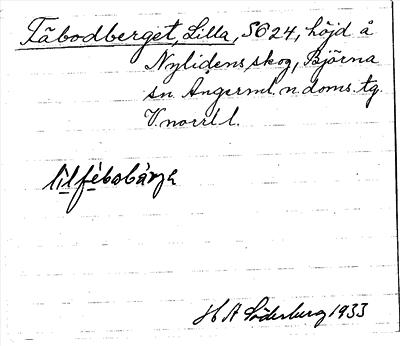 Täbodberget, Lilla, SG24, höjd å
Nylidens skog, Björna
sn Ångerml. n. doms. tg.
V.norrl l.
H A Söderberg 1933